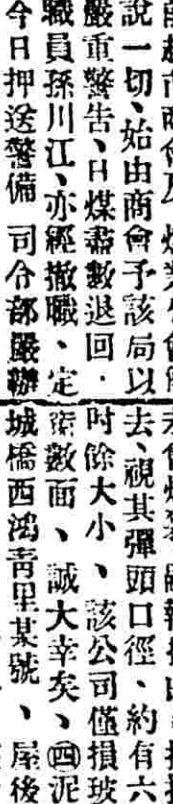 說一切、始由商會予該局以
嚴重警告、日煤盡數退回．
職員孫川江、亦經撤職、定
今日押送警備 司令部嚴辦
去、視其彈頭口徑、約有六
吋餘大小、該公司僅損玻
窗數面、誠大幸矣、㊃泥
城橋西鴻青里某號、屋後